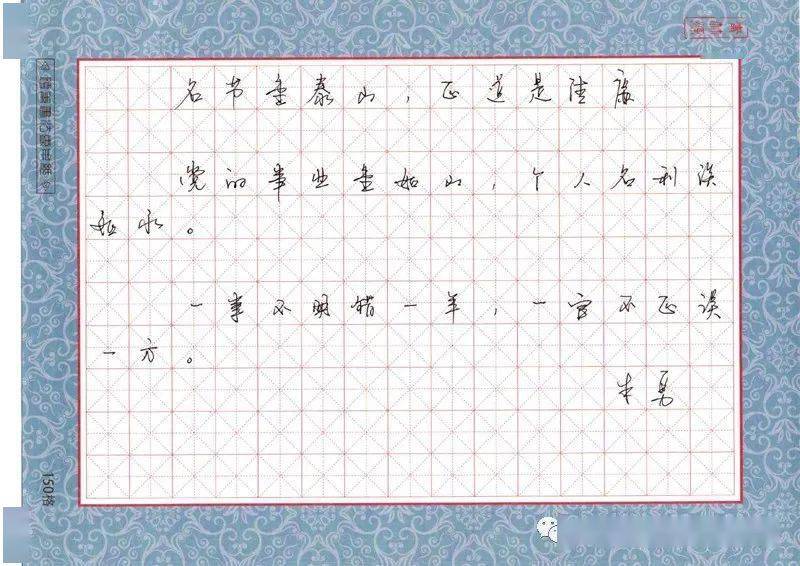 名节重泰山，正道是
党的事业重如山，个人名利淡
如水。
一事不明错一年，一官不正误
一方。
朱勇
150格